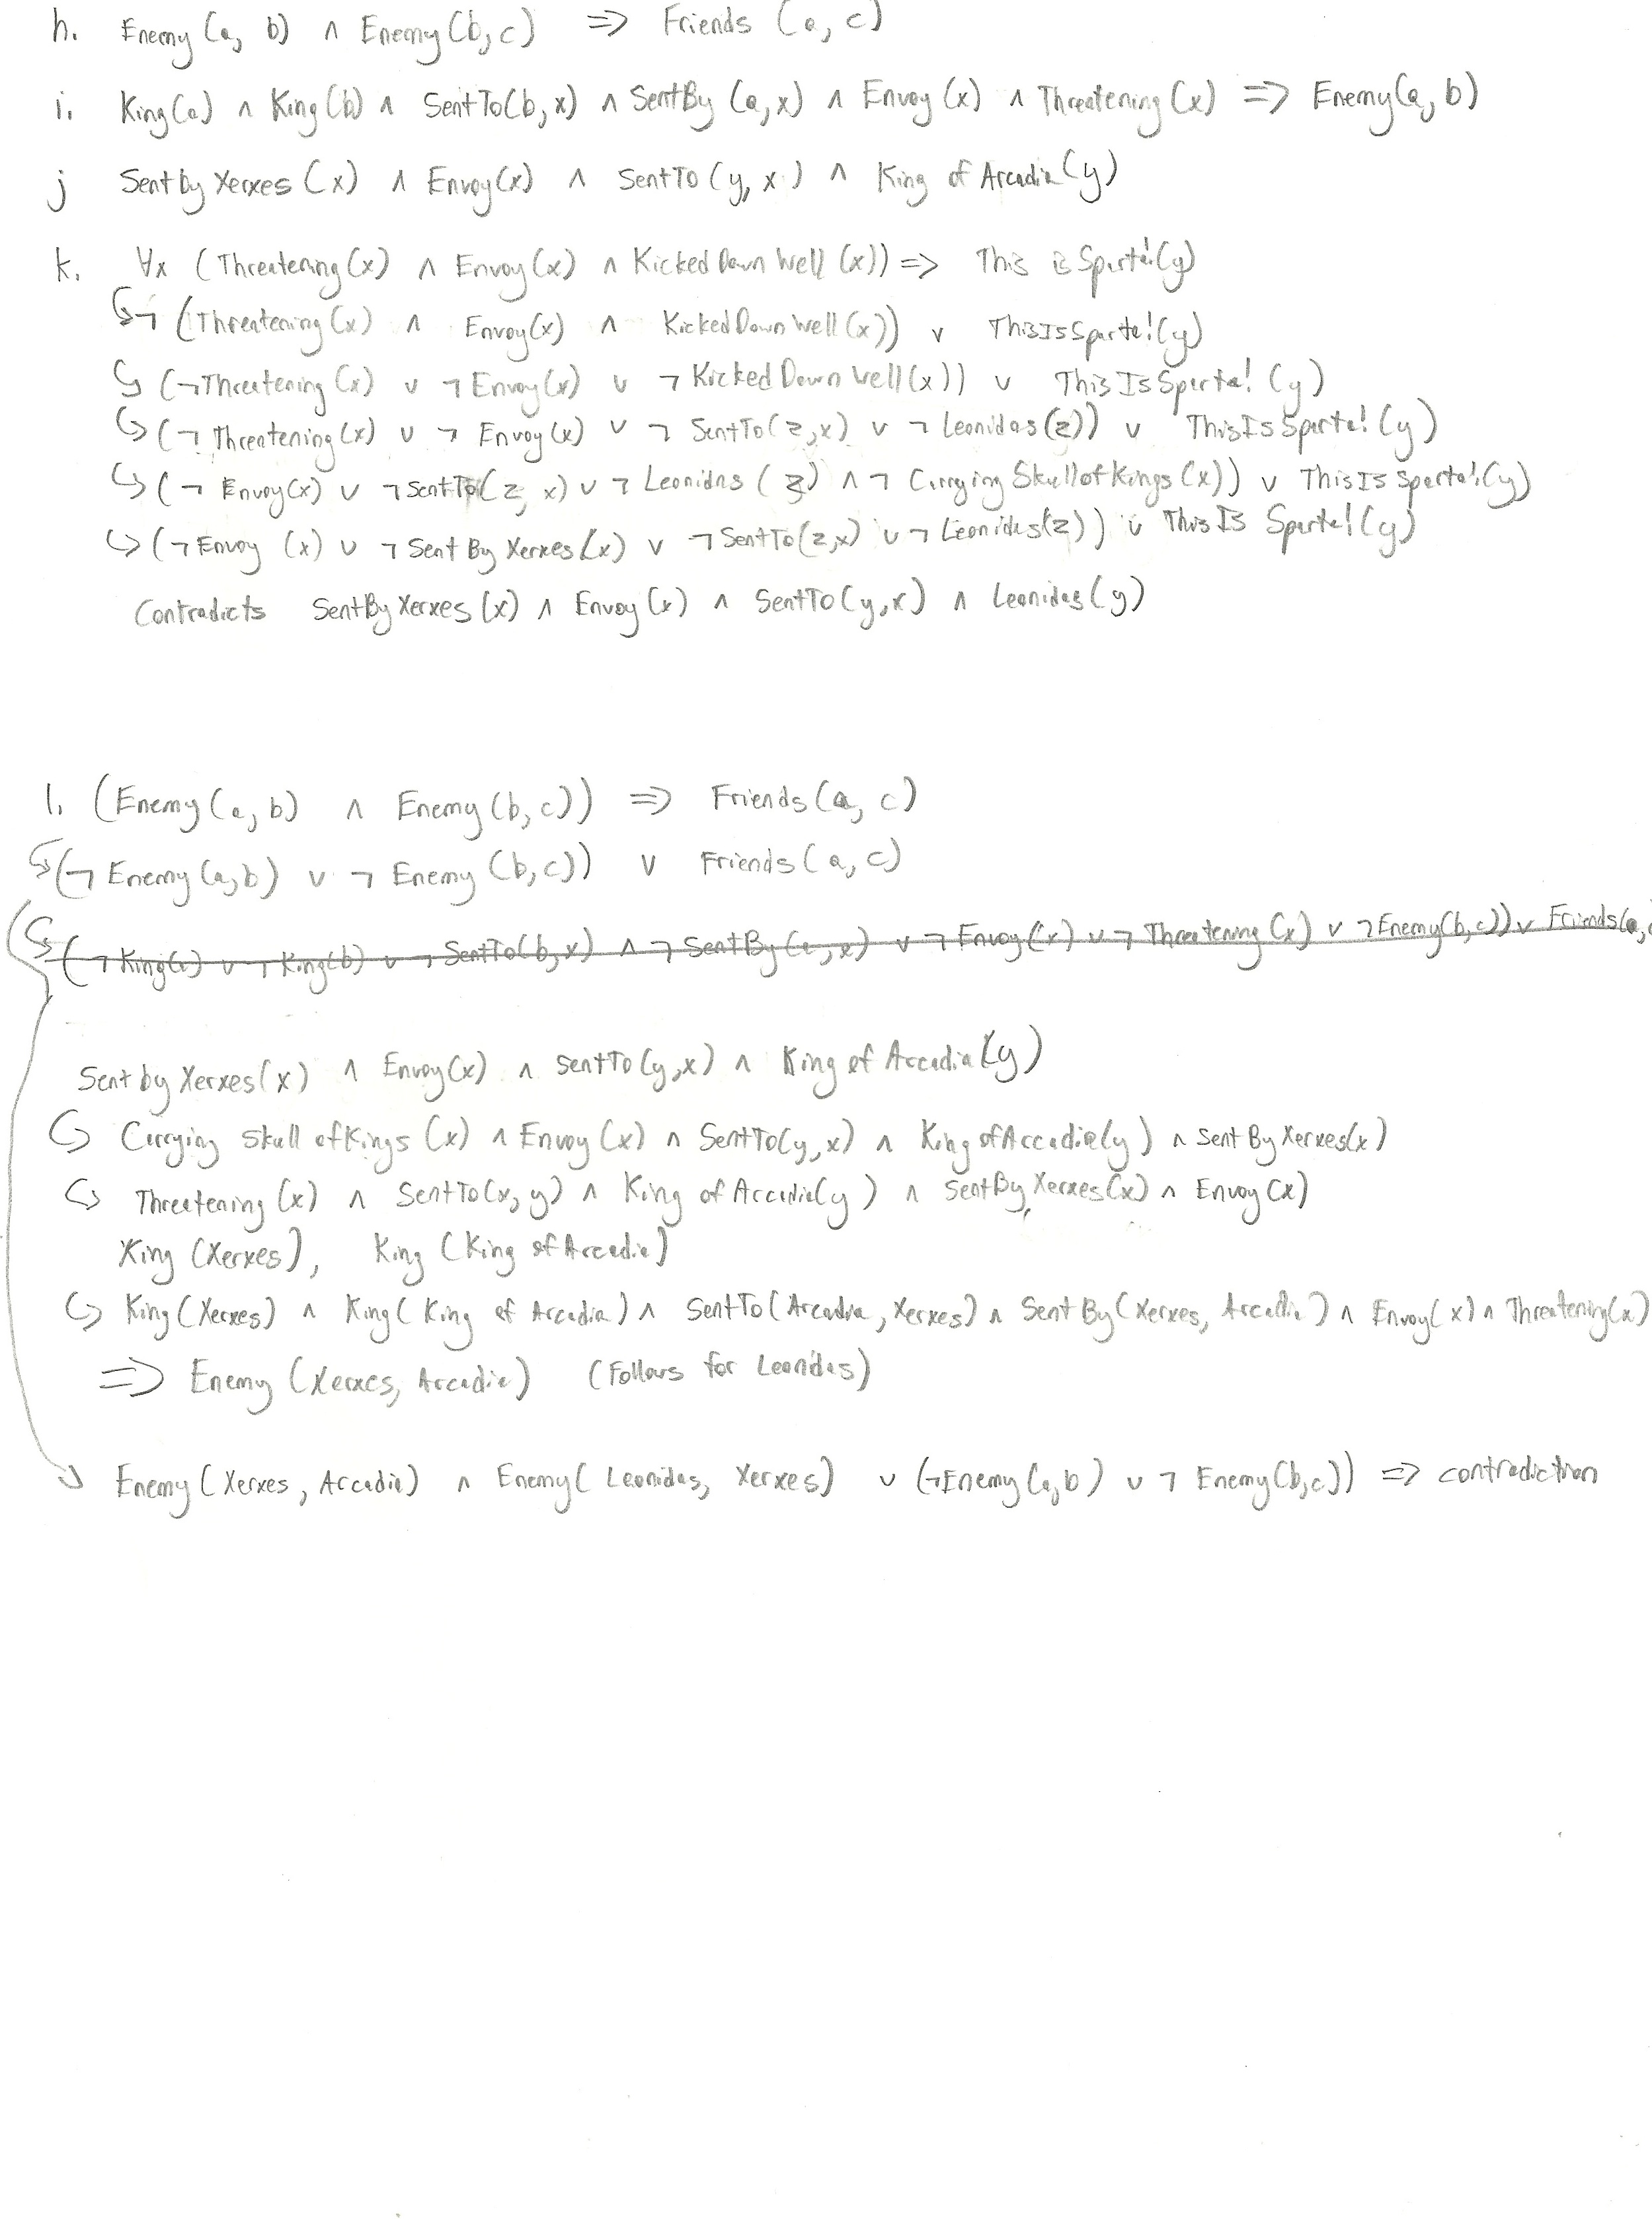 h. Enemy (a, b) ∧ Enemy (b, c) => Friends (a, c)
i. King(a) ∧ King(b) ∧ SentTo(b, x) ∧ SentBy (a, x) ∧ Envoy (x) ∧ Threatening (x) => Enemy(a, b)
j Sent by Xerxes (x) ∧ Envoy(x) ∧ SentTo (y, x) ∧ King of Arcadia (y)
k. ∀x (Threatening(x) ∧ Envoy(x) ∧ Kicked Down Well (x)) => This is Sparta!(y)
↪ ¬ (Threatening(x) ∧ Envoy(x) ∧ KickedDownWell(x)) ∨ ThisIsSparta!(y)
↪ (¬Threatening(x) ∨ ¬Envoy(x) ∨ ¬KickedDownWell(x)) ∨ ThisIsSparta! (y)
↪ (¬Threatening(x) ∨ ¬ Envoy(x) ∨ ¬ SentTo(z,x) ∨ ¬ Leonidas(z)) ∨ ThisIsSparta! (y)
↪ (¬ Envoy(x) ∨ ¬SentTo(z, x) ∨ ¬ Leonidas (z) ∧ ¬ Carrying Skull of Kings (x)) ∨ ThisIs Sparta!(y)
↪ (¬Envoy (x) ∨ ¬Sent By Xerxes(x) ∨ ¬SentTo(z,x) ∨ ¬Leonidas(z)) ∨ This Is Sparta!(y)
Contradicts SentBy Xerxes (x) ∧ Envoy(x) ∧ SentTo(y,x) ∧ Leonidas(y)
l. (Enemy (a, b) ∧ Enemy (b, c)) => Friends (a, c)
↪ (¬ Enemy (a,b) ∨ ¬ Enemy (b,c)) ∨ Friends (a, c)
↪ (¬King(a) ∨ ¬King(b) ∨ ¬SentTo(b,x) ∧ ¬SentBy(a,x) ∨ ¬Envoy(x) ∨ ¬Threatening(x) ∨ ¬Enemy(b,c)) ∨ Friends(a,
Sent by Xerxes(x) ∧ Envoy(x) ∧ SentTo (y,x) ∧ King of Arcadia (y)
↪ Carrying Skull of Kings (x) ∧ Envoy (x) ∧ SentTo(y,x) ∧ King of Arccadia(y) ∧ Sent By Xerxes(x)
↪ Threatening (x) ∧ SentTo(x, y) ∧ King of Arcadia(y) ∧ SentBy Xerxes(x) ∧ Envoy(x)
King (Xerxes), King (King of Arcadia)
↪ King(Xerxes) ∧ King( King of Arcadia) ∧ SentTo(Arcadia, Xerxes) ∧ Sent By (Xerxes, Arcadia) ∧ Envoy(x) ∧ Threatening(x)
=> Enemy (Xerxes, Arcadia) (Follows for Leonidas)
Enemy (Xerxes, Arcadia) ∧ Enemy( Leonidas, Xerxes) ∨ (¬Enemy(a,b) ∨ ¬ Enemy(b,c)) => contradiction